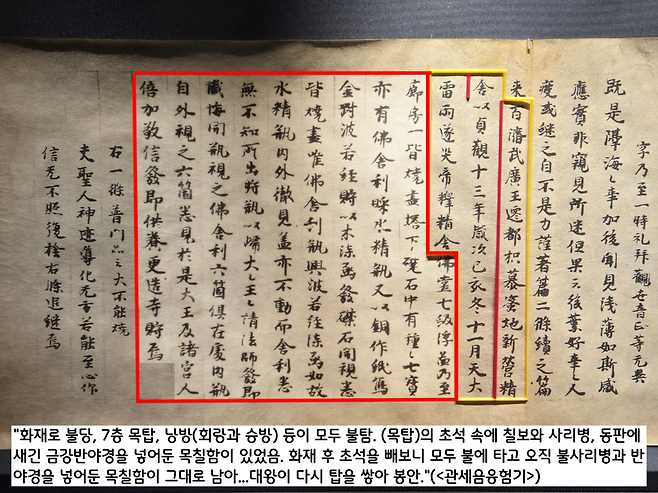 字乃至一時礼拜觀世音正等无異
既是隣海之事加復聞見淺薄如斯感
應實非窺見所迷但果之後葉好事之人
或继之自不是力謹著篇二條續之篇
末百濟武廣王遷都枳慕蜜地新營精
舍以貞觀十三年歲次己亥冬十一月天大
雷雨遂灾帝釋精舍佛堂七級浮啚乃至
廊房一皆燒盡塔下礎石中有種〻七寶
亦有佛舍利睬水精甁又以銅作紙寫
金剛波若經貯以木漆函發礎石開視悉
皆燒盡唯佛舍利甁與波若經漆函如故
水精甁內外徹見盖亦不動而舍利悉
無不知所出將甁以歸大〻王〻請法師發即
懺悔開甁視之佛舍利六箇俱在處內甁
自外視之六箇悉見於是大王及諸宮人
倍加敬信發即供養更造寺貯焉
右一條普門品云火不能燒
夫聖人神迹導化无方若能至心作
信无不照復接右條追継焉
"화재로 불당, 7층 목탑, 낭방(회랑과 승방) 등이 모두 불탐. (목탑)의 초석 속에 칠보와 사리병, 동판에
새긴 금강반야경을 넣어둔 목칠함이 있었음. 화재 후 초석을 빼보니 모두 불에 타고 오직 불사리병과 반
야경을 넣어둔 목칠함이 그대로 남아...대왕이 다시 탑을 쌓아 봉안."(<관세음응험기>)